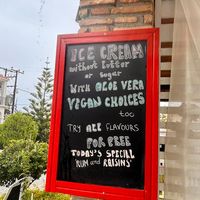 ICE CREAM
without butter
or sugar
WITH ALOE VERA
VEGAN CHOICES
too
TRY ALL FLAVOURS
FOR FREE
TODAY'S SPECIAL
RUM and RAISINS